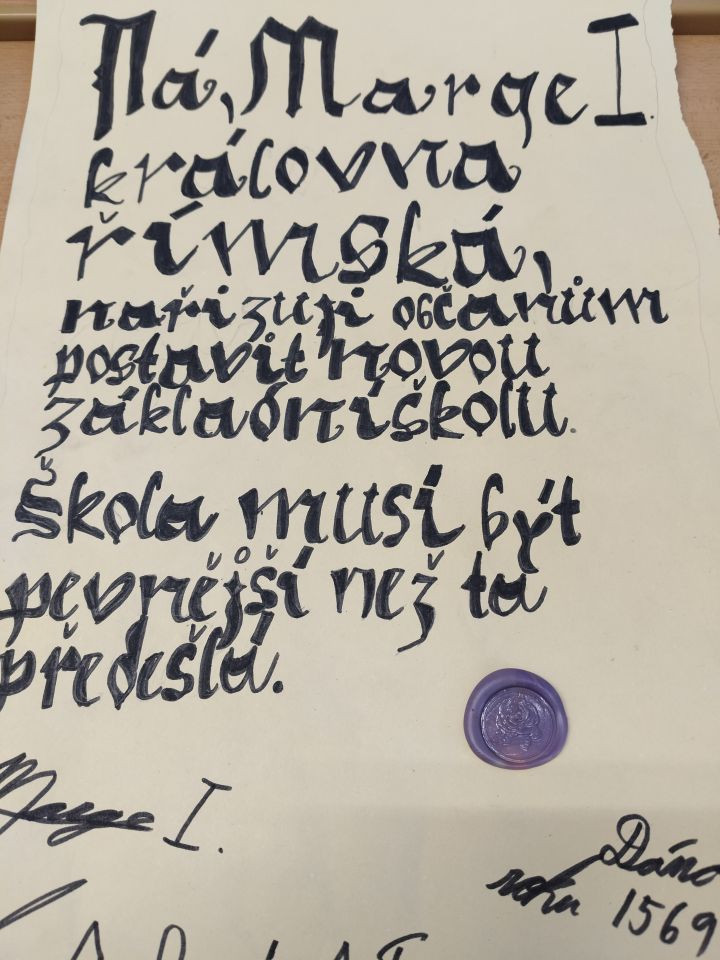 Já, Marge I.
královna
římská,
nařizuji občanům
postavit novou
základní školu.
Škola musí být
pevnější než ta
předešlá.
Marge I.
Dáno
roku 1569